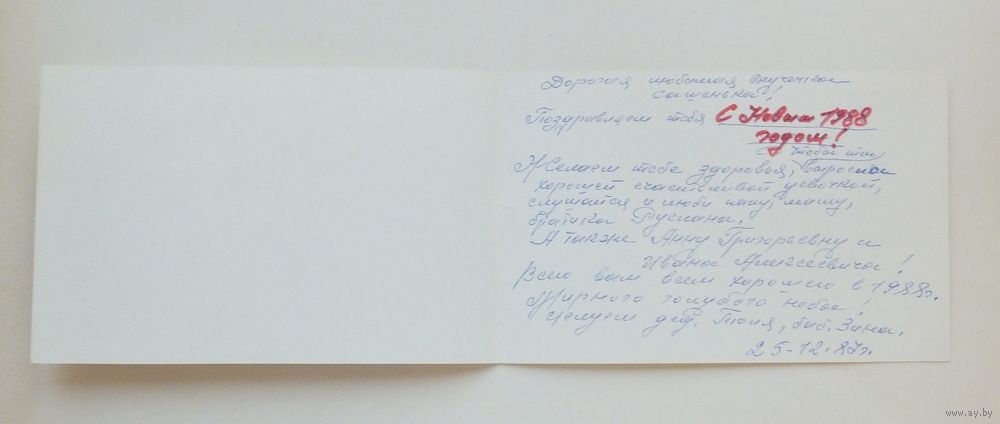 Дорогая любимая внученька
Сашенька!
Поздравляем тебя С Новым 1988
годом!
чтобы ты
Желаем тебе здоровья, выросла
хорошей счастливой девочкой,
слушайся и люби папу, маму,
братика Руслана.
А также Анну Григорьевну и
Ивана Алексеевича!
Всего вам всем хорошего в 1988г.
Мирного голубого неба!
Целуем дед. Толя, баб. Зина.
25-12-87г.
www.ay.by